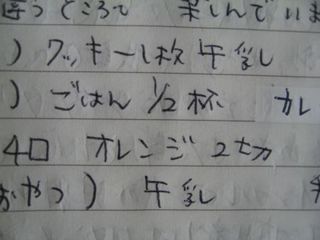 違うところで 楽しんでいま
) クッキー1枚 牛乳
) ごはん 1/2杯 カレ
4口 オレンジ 2切
おやつ) 牛乳